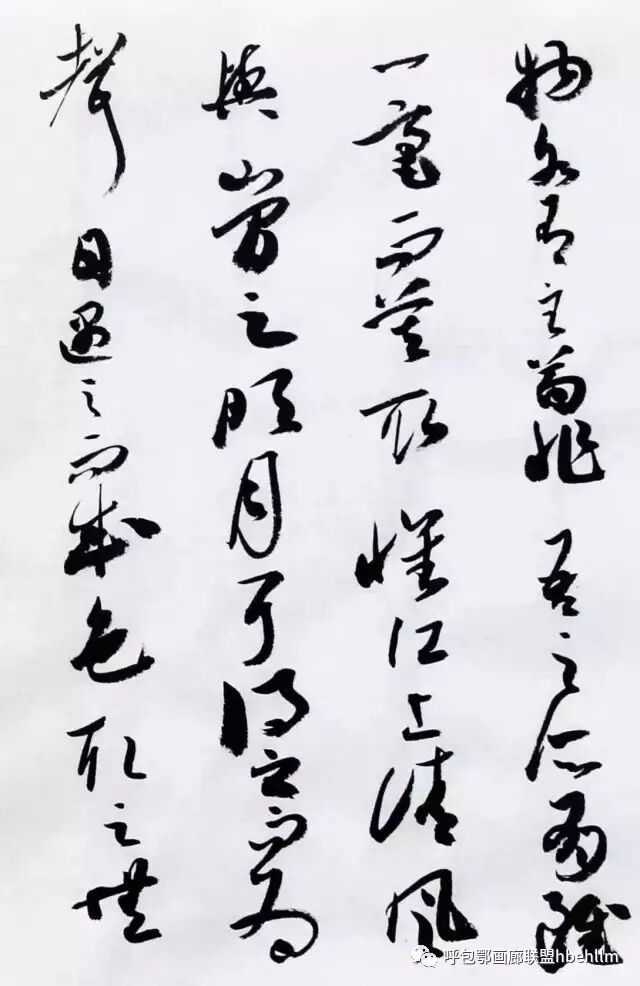 物各有主苟非吾之所有雖
一毫而莫取惟江上清風
與山間之明月耳得之而為
聲目遇之而成色取之無
呼包鄂画廊联盟hbehllm